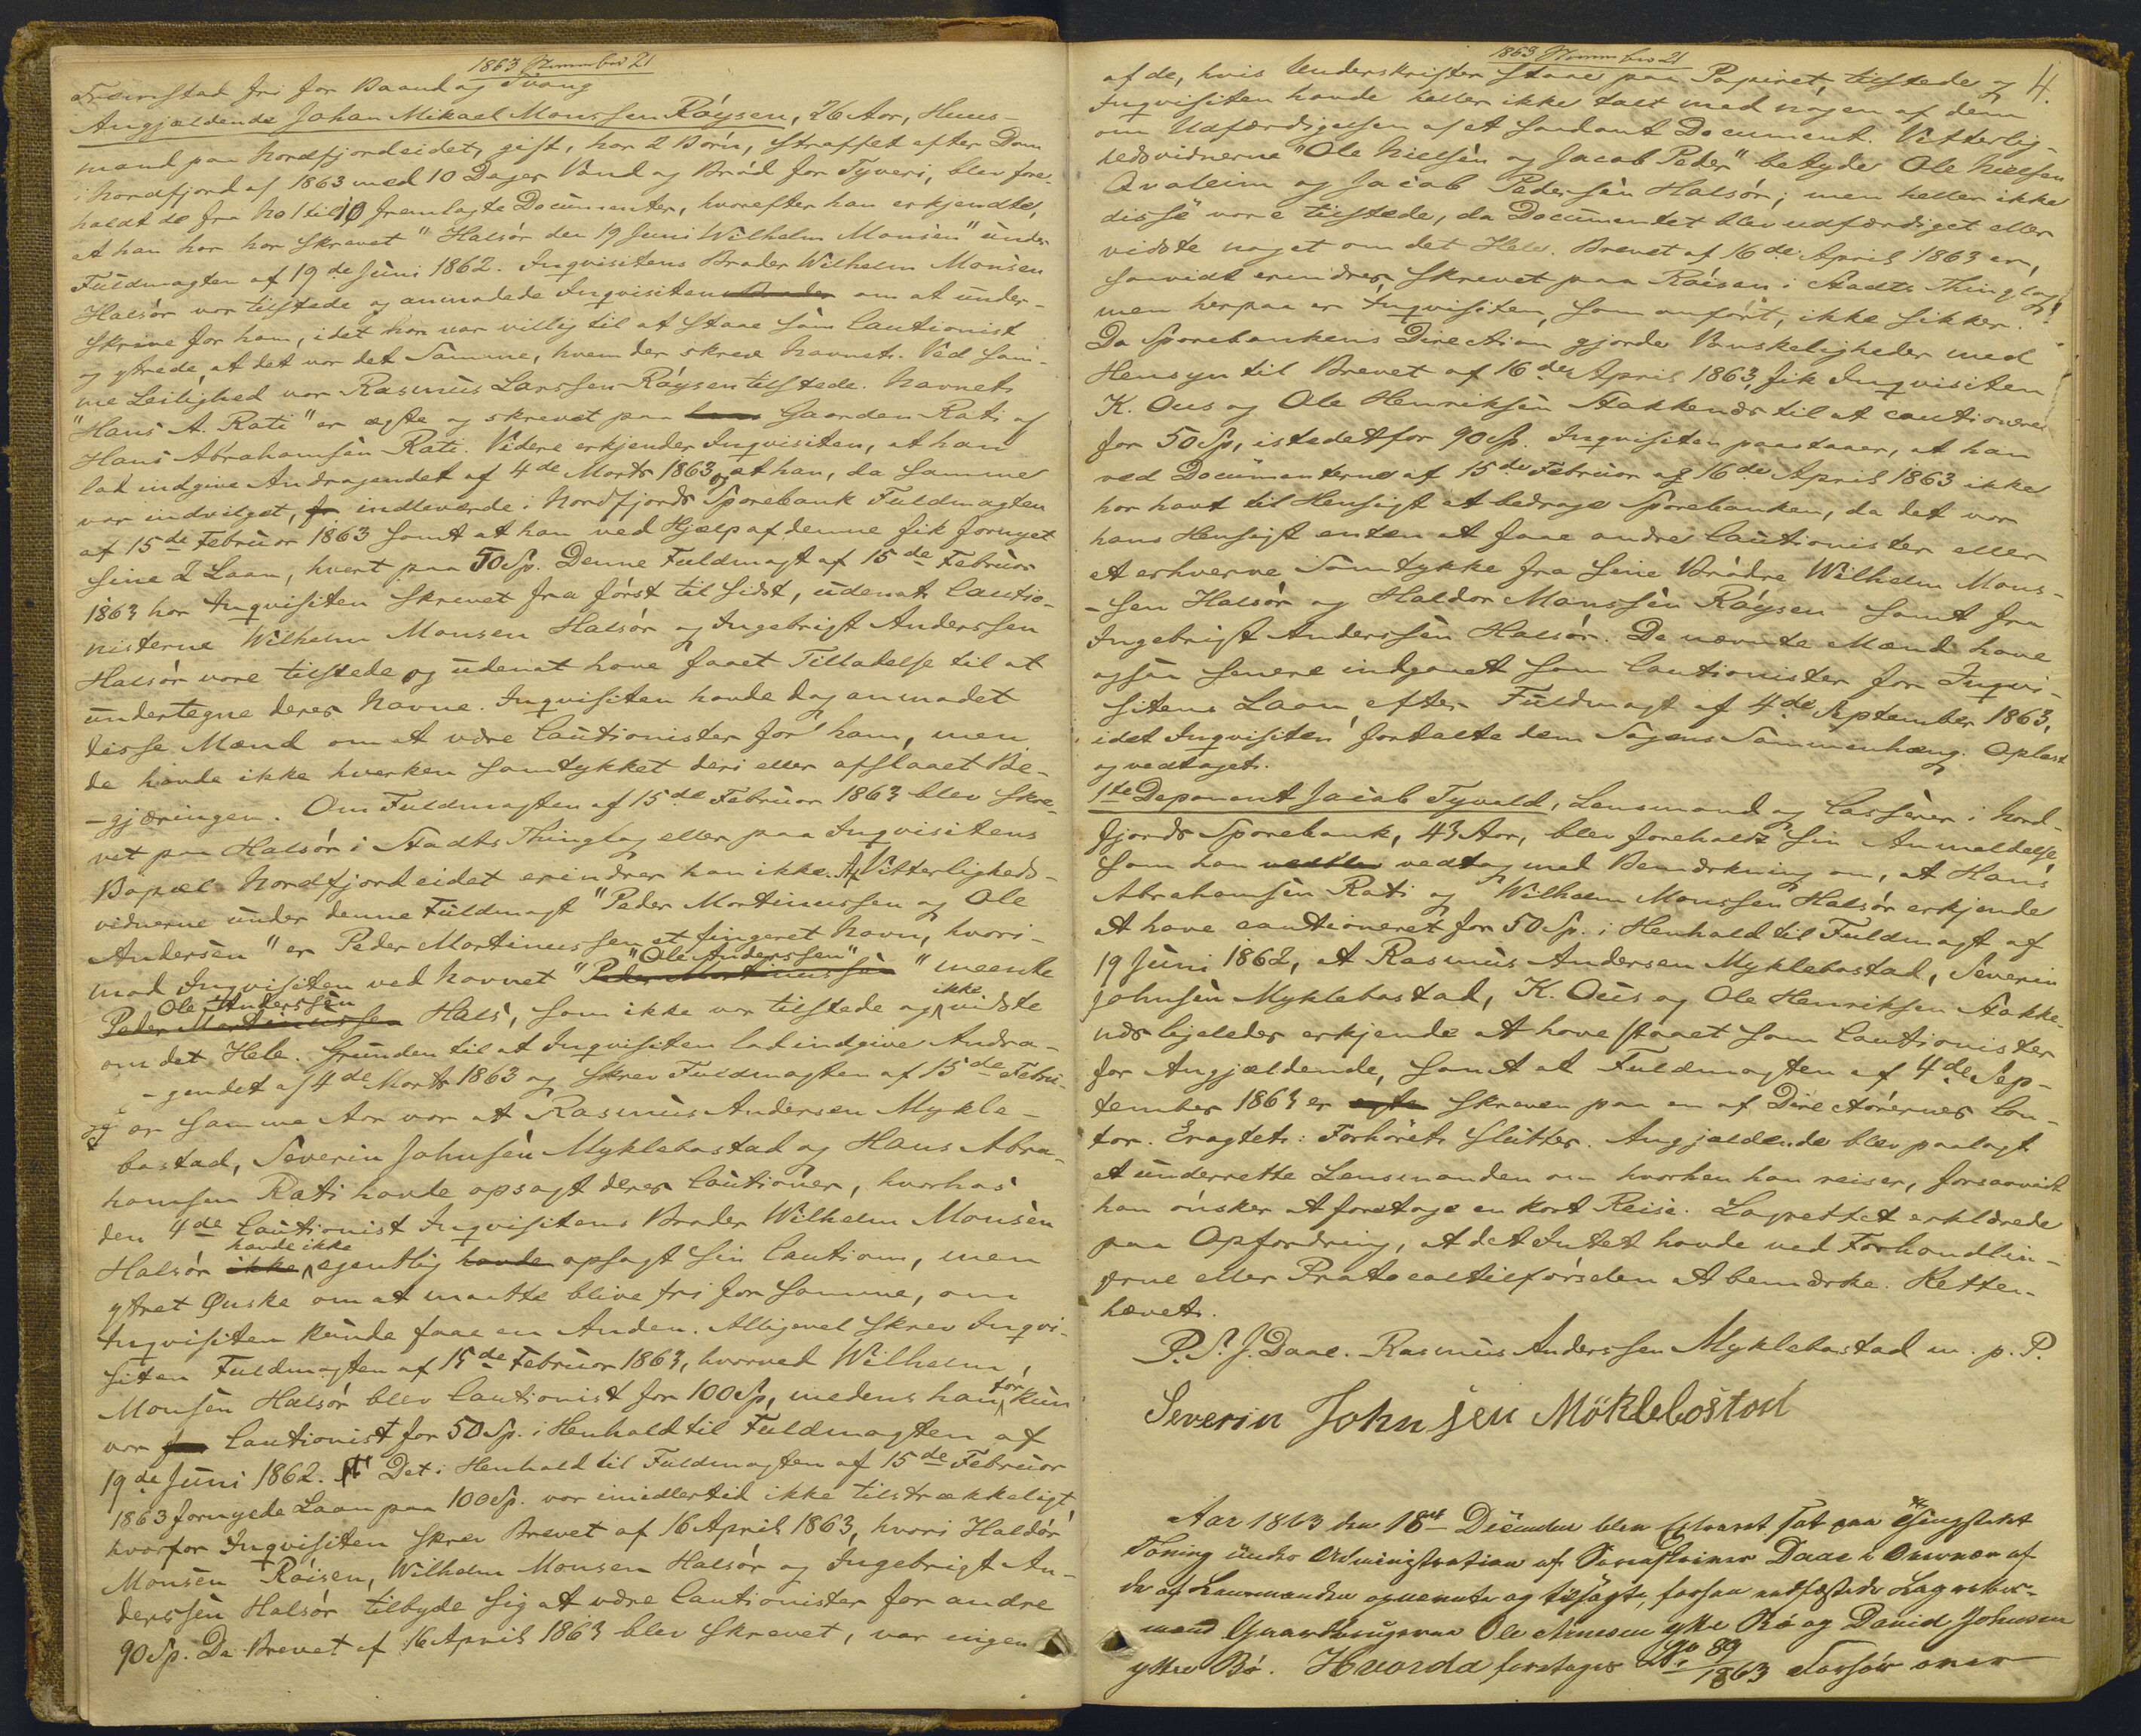 1863 November 21
Fremstod fri for Baand og Tvang
Angjældende Johan Mikael Monssen Røysen, 26 Aar, Huus-
mand paa Nordfjordeidet, gift, har 2 Børn, straffet efter Dom
i Nordfjord af 1863 med 10 Dages Vand og Brød for Tyveri, blev fore-
holdt de fra No 1 til 10 fremlagte Documenter, hvorefter han erkjendte,
at han har har skrevet "Halsør den 19 Juni Wilhelm Monsen" under
Fuldmagten af 19de Juni 1862. Inqvisitens Broder Wilhelm Monsen
Halsør var tilstede og anmodede Inqvisitens Broder om at under-
skrive for ham, idet han var villig til at staae som Cautionist
og ytrede, at det var det Samme, hvem der skrev Navnet. Ved sam-
me Leilighed var Rasmus Larssen Røysen tilstede. Navnet
"Hans A. Rati" er ægte og skrevet paa Gaarden Rati af
Hans Abrahamsen Rati. Videre erkjender Inqvisiten, at han
lod indgive Andragendet af 4de Marts 1863, og at han, da samme
var indvilget, indleverede i Nordfjords Sparebank Fuldmagten
af 15de Februar 1863 samt at han ved Hjælp af denne fik fornyet
sine 2 Laan, hvert paa 50 Sp. Denne Fuldmagt af 15de Februar
1863 har Inqvisiten skrevet fra først til sidst, udenat Cautio-
nisterne Wilhelm Monsen Halsør og Ingebrigt Anderssen
Halsør vare tilstede og udenat have faaet Tilladelse til at
undertegne deres Navne. Inqvisiten havde dog anmodet
disse Mænd om at være Cautionister for ham, men
de havde ikke hverken samtykket deri eller afslaaet Be-
-gjæringen. Om Fuldmagten af 15de Februar 1863 blev skre-
vet paa Halsør i Stadts Thinglag eller paa Inqvisitens
Bopæl Nordfjordeidet erindrer han ikke. Af Vitterligheds-
vidnerne under denne Fuldmagt "Peder Martinussen og Ole
Andersen" er Peder Martinussen et fingeret Navn, hvori-
mod Inqvisiten ved Navnet "Peder Martinussen" "Ole Anderssen" meente
Peder Martinussen Ole Anderssen Hals, som ikke var tilstede og ikke vidste
om det Hele. Grunden til at Inqvisiten lod indgive Andra-
-gendet af 4de Marts 1863 og skrev Fuldmagten af 15de Febru-
ar samme Aar var at Rasmus Andersen Mykle-
bostad, Severin Johnsen Myklebostad og Hans Abra-
hamsen Rati havde opsagt deres Cautioner, hvorhos
den 4de Cautionist Inqvisitens Broder Wilhelm Monsen
Halsør ikke havde ikke egentlig havde opsagt sin Caution, men
ytret Ønske om at maatte blive fri for samme, om
Inqvisiten kunde faae en Anden. Alligevel skrev Inqvi-
siten Fuldmagten af 15de Februar 1863, hvorved Wilhelm
Monsen Halsør blev Cautionist for 100 Sp, medens han før kun
var Cautionist for 50 Sp. i Henhold til Fuldmagten af
19de Juni 1862. Det i Henhold til Fuldmagten af 15de Februar
1863 fornyede Laan paa 100 Sp. var imidlertid ikke tilstrækkeligt,
hvorfor Inqvisiten skrev Brevet af 16 April 1863, hvori Haldor
Monsen Røisen, Wilhelm Monsen Halsør og Ingebrigt An-
derssen Halsør tilbyde sig at være Cautionister for andre
90 Sp. Da Brevet af 16 April 1863 blev skrevet, var ingen
1863 November 21
4.
af de, hvis Underskrifter staae paa Papiret, tilstede og
Inqvisiten havde heller ikke talt med nogen af dem
om Udfærdigelsen af et saadant Document. Vitterlig-
hedsvidnerne "Ole Nielsen og Jacob Peder" betyder Ole Nielsen
Qvaleim og Jacob Pedersen Halsør; men heller ikke
disse vare tilstede, da Documentet blev udfærdiget eller
vidste noget om det Hele. Brevet af 16de April 1863 er,
saavidt erindres, skrevet paa Røisen i Stadts Thinglag,
men herpaa er Inqvisiten, som anført, ikke sikker.
Da Sparebankens Direction gjorde Vanskeligheder med
Hensyn til Brevet af 16de April 1863, fik Inqvisiten
K. Ous og Ole Henriksen Stakkenæs til at cautionere
for 50 Sp, istedetfor 90 Sp. Inqvisiten paastaaer, at han
ved Documenterne af 15de Februar og 16de April 1863 ikke
har havt til Hensigt at bedrage Sparebanken, da det var
hans Hensigt enten at faae andre Cautionister eller
at erhverve Samtykke fra sine Brødre Wilhelm Mons-
-sen Halsør og Haldor Monssen Røysen samt fra
Ingebrigt Anderssen Halsør. De nævnte Mænd have
ogsaa senere indgaaet som Cautionister for Inqvi-
sitens Laan efter Fuldmagt af 4de September 1863,
idet Inqvisiten fortalte dem Sagens Sammenhæng. Oplæst
og vedtaget.
1ste Deponent Jacob Tyvold, Lensmand og Casserer i Nord-
fjords Sparebank, 43 Aar, blev foreholdt sin Anmeldelse
som han vedtog med Bemærkning om, at Hans
Abrahamsen Rati og Wilhelm Monssen Halsør erkjende
at have cautioneret for 50 Sp. i Henhold til Fuldmagt af
19 Juni 1862, at Rasmus Andersen Myklebostad, Severin
Johnsen Myklebostad, K. Ous og Ole Henriksen Stakke-
næs ligeledes erkjende at have staaet som Cautionister
for Angjældende, samt at Fuldmagten af 4de Sep-
tember 1863 er ægte skreven paa en af Directørernes Con-
tor. Eragtet: Forhøret slutter. Angjældende blev paalagt
at underrette Lensmanden om hvorhen han reiser, forsaavidt
han ønsker at foretage en kort Reise. Lagrettet erklærede
paa Opfordring, at det Intet havde ved Forhandlin-
gerne eller Protocoltilførselen at bemærke. Retten
hævet.
P. T. J. Daae. Rasmus Anderssen Myklebostad m. p. P.
Severin Johnsen Möklebostad
Aar 1863 den 18de December blev Extraret sat paa Thingstedet
Toning under Administration af Sorenskriver Daae i Overvær af
de af Lensmanden opnævnte og tilsagte, forhen edfæstede Lagrettes-
mænd Gaardbrugerne Ole Arnesen ytre Bø og David Johnsen
ytre Bø. Hvorda foretages No 89/1863 Forhør over